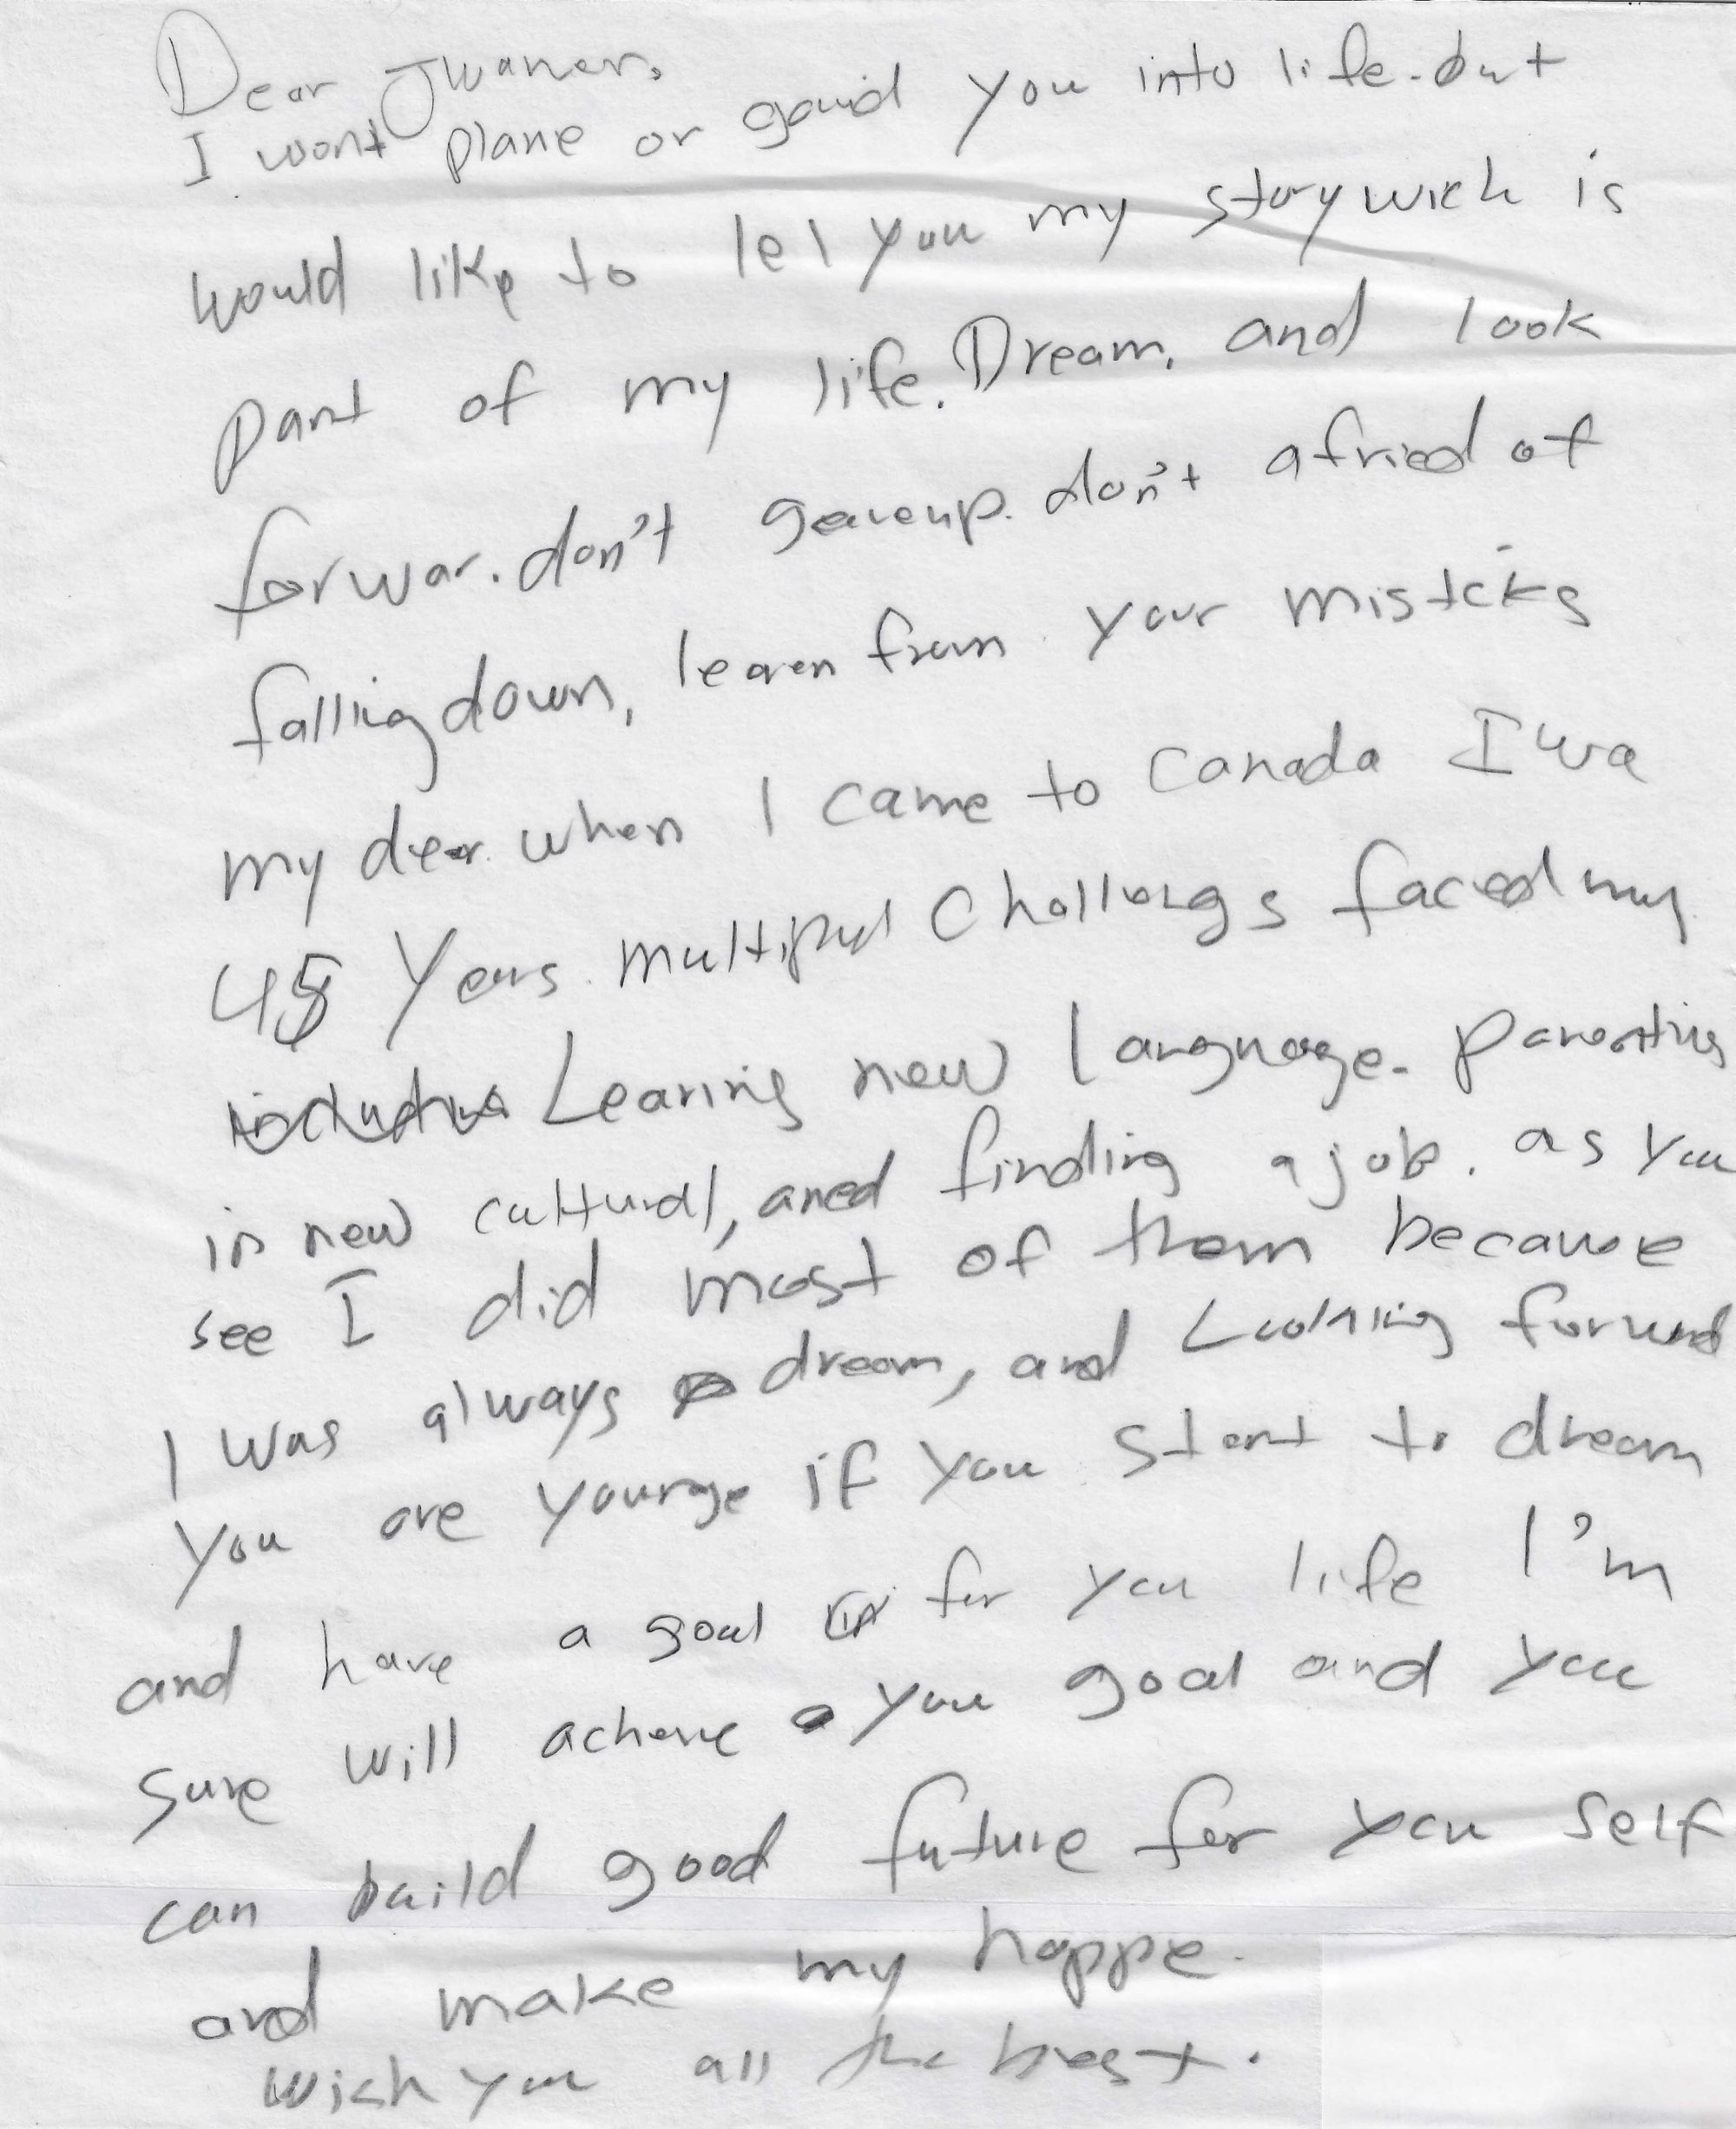 Dear Jwaner,
I wont plane or gauid you into life. but
would like to lel you my story wich is
part of my life. Dream, and look
forwar. don't geaveup. don't afried of
falling down, learen from your misteks
my dear when I came to Canada I wa
45 Years. multipul Challengs faced my
Learinig new language. parenting
in new cultural, aned finding a job. as you
see I did most of them because
I was always dream, and Looking forward
you are younge if you start to dream
and have a goal for you life I'm
sure will acheve you goal and you
can build good future for you self
and make my happe.
wich you all the best.